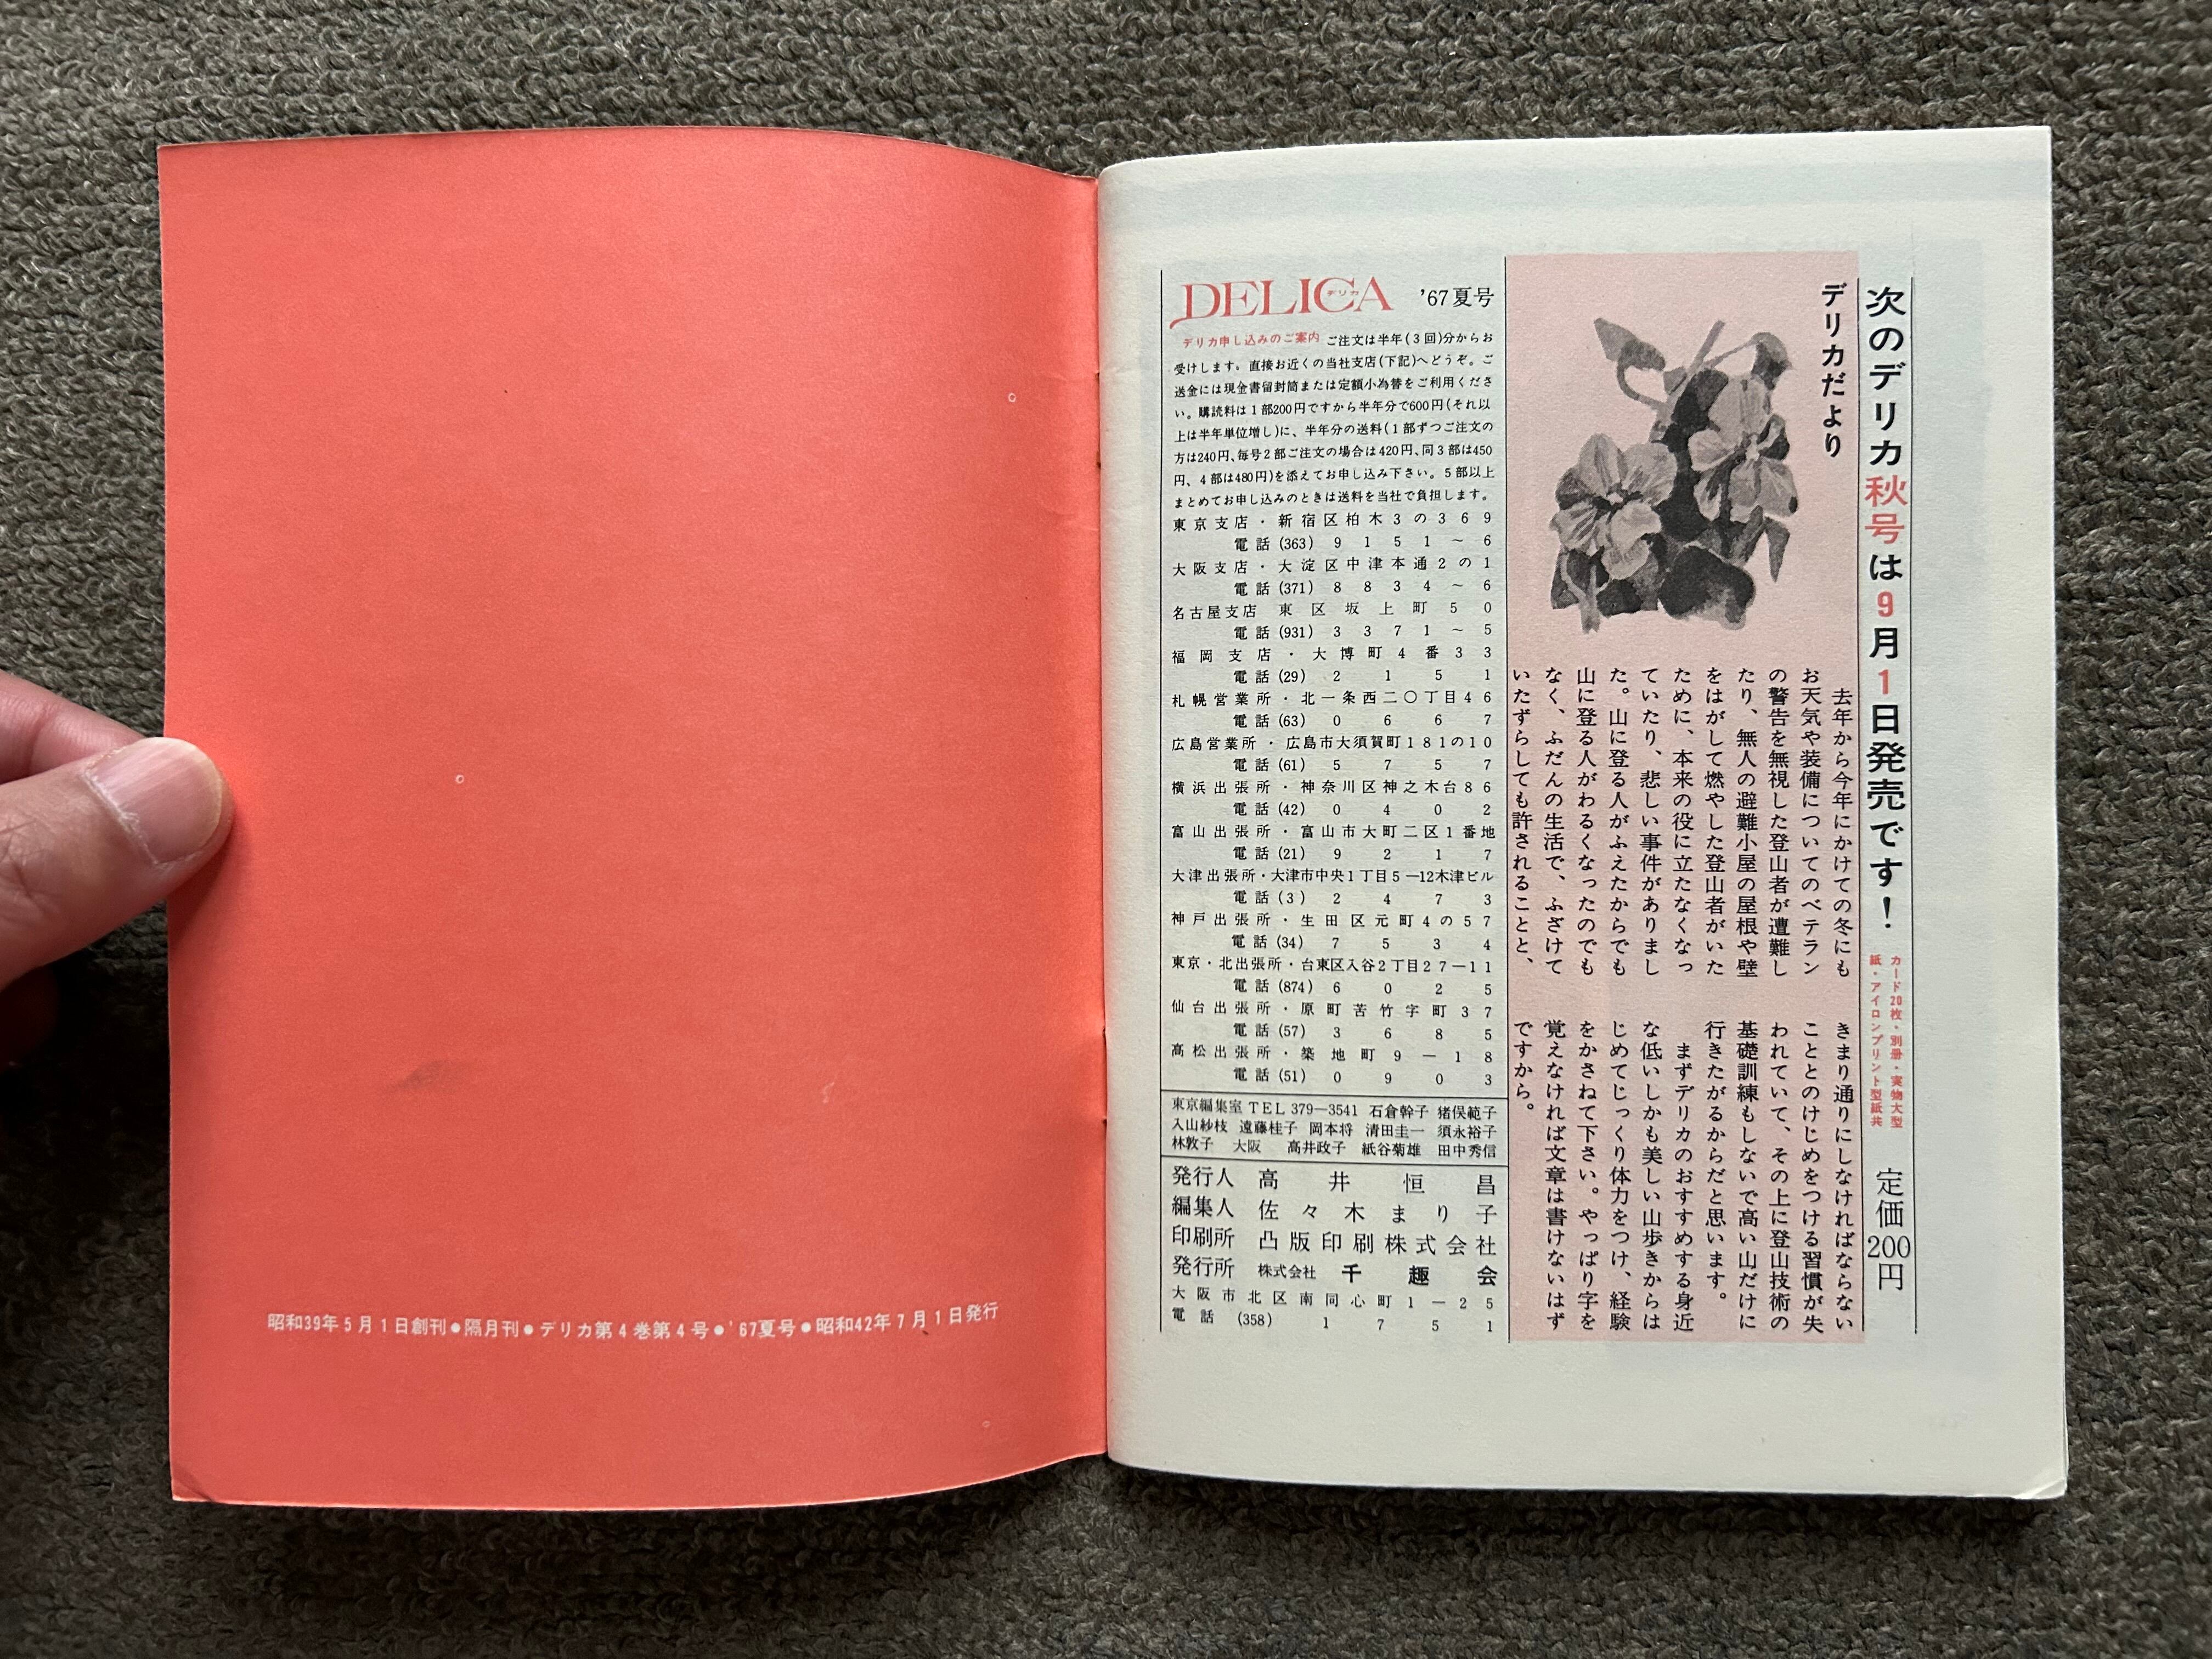 昭和39年5月1日創刊●隔月刊●デリカ第4巻第4号●'67夏号●昭和42年7月1日発行
次のデリカ秋号は9月1日発売です!
カード20枚・別冊・実物大型
紙・アイロンプリント型紙共
定価200円
デリカだより
去年から今年にかけての冬にも
お天気や装備についてのベテラン
の警告を無視した登山者が遭難し
たり、無人の避難小屋の屋根や壁
をはがして燃やした登山者がいた
ために、本来の役に立たなくなっ
ていたり、悲しい事件がありまし
た。山に登る人がふえたからでも
山に登る人がわるくなったのでも
なく、ふだんの生活で、ふざけて
いたずらしても許されることと、
きまり通りにしなければならない
こととのけじめをつける習慣が失
われていて、その上に登山技術の
基礎訓練もしないで高い山だけに
行きたがるからだと思います。
まずデリカのおすすめする身近
な低いしかも美しい山歩きからは
じめてじっくり体力をつけ、経験
をかさねて下さい。やっぱり字を
覚えなければ文章は書けないはず
ですから。
DELICA デリカ '67夏号
デリカ申し込みのご案内 ご注文は半年(3回)分からお
受けします。直接お近くの当社支店(下記)へどうぞ。ご
送金には現金書留封筒または定額小為替をご利用くださ
い。購読料は1部200円ですから半年分で600円(それ以
上は半年単位増し)に、半年分の送料(1部ずつご注文の
方は240円、毎号2部ご注文の場合は420円、同3部は450
円、4部は480円)を添えてお申し込み下さい。5部以上
まとめてお申し込みのときは送料を当社で負担します。
東京支店・新宿区柏木3の369
電話(363)9151~6
大阪支店・大淀区中津本通2の1
電話(371)8834~6
名古屋支店 東区坂上町50
電話(931)3371~5
福岡支店・大博町4番33
電話(29)2151
札幌営業所・北一条西二〇丁目46
電話(63)0667
広島営業所・広島市大須賀町181の10
電話(61)5757
横浜出張所・神奈川区神之木台86
電話(42)0402
富山出張所・富山市大町二区1番地
電話(21)9217
大津出張所・大津市中央1丁目5—12木津ビル
電話(3)2473
神戸出張所・生田区元町4の57
電話(34)7534
東京・北出張所・台東区入谷2丁目27—11
電話(874)6025
仙台出張所・原町苦竹字町37
電話(57)3685
高松出張所・築地町9—18
電話(51)0903
東京編集室 TEL 379—3541 石倉幹子 猪俣範子
入山紗枝 遠藤桂子 岡本将 清田圭一 須永裕子
林敦子 大阪 高井政子 紙谷菊雄 田中秀信
発行人 高井恒昌
編集人 佐々木まり子
印刷所 凸版印刷株式会社
発行所 株式会社 千趣会
大阪市北区南同心町1—25
電話(358)1751